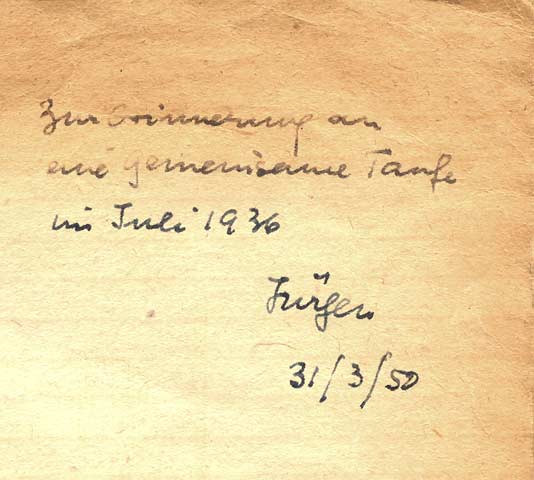 Zur Erinnerung an
eine gemeinsame Taufe
im Juli 1936
Jürgen
31/3/50